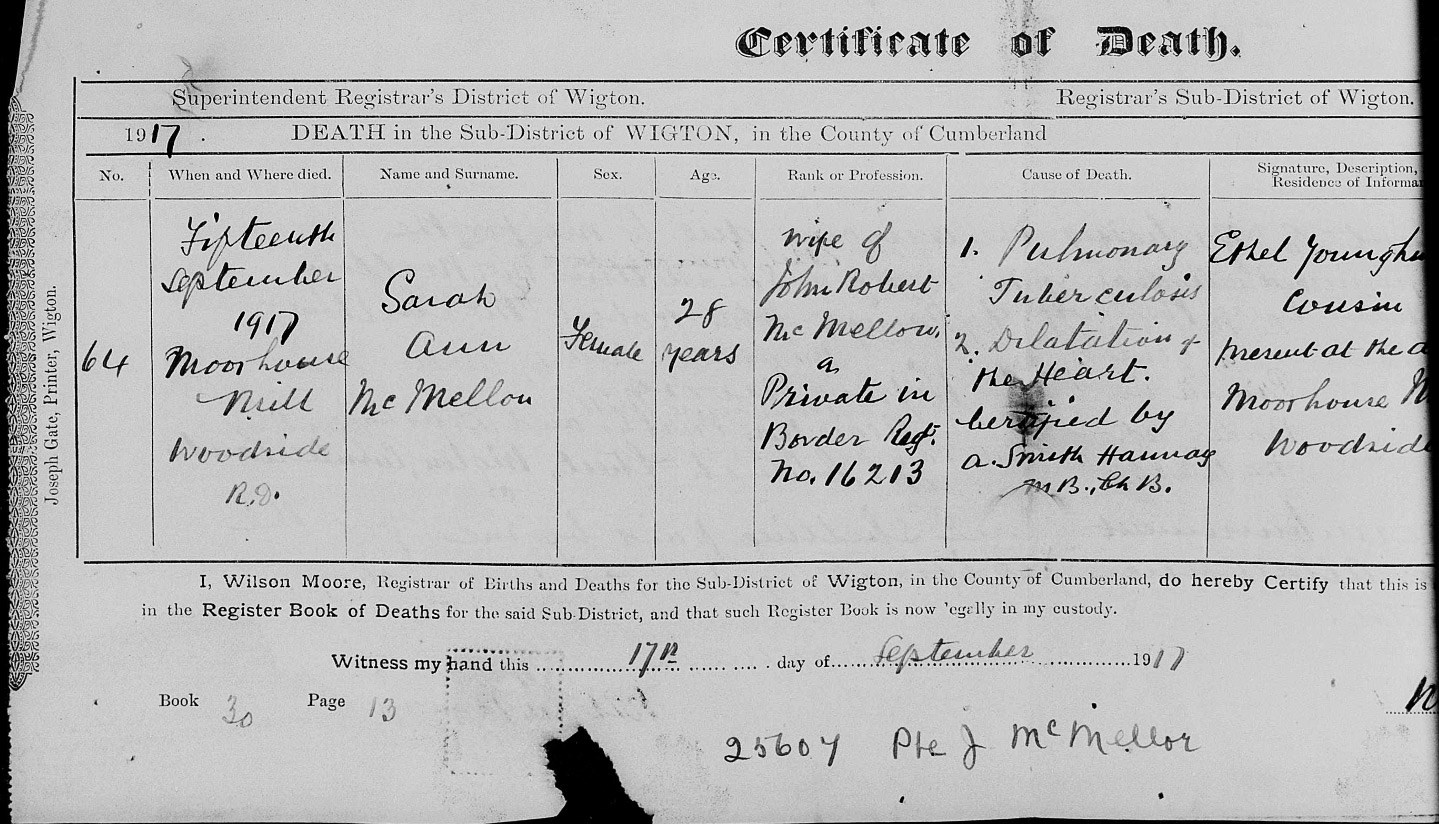 Certificate of Death.
Superintendent Registrar's District of Wigton. Registrar's Sub-District of Wigton.
1917. DEATH in the Sub-District of WIGTON, in the County of Cumberland
No. When and Where died. Name and Surname. Sex. Age. Rank or Profession. Cause of Death. Signature, Description,
Residence of Informan
64
Fifteenth
September
1917
Moorhouse
Mill
Woodside
R.D.
Sarah
Ann
Mc Mellon
Female
28
years
Wife of
John Robert
Mc Mellow,
a
Private in
Border Regt.
No. 16213
1. Pulmonary
Tuberculosis
2. Dilatation of
the Heart.
Certified by
A. Smith Hannay
M.B., Ch B.
Ethel
Cousin
Present at the d
Moorhouse M
Woodside
Joseph Gate, Printer, Wigton.
I, Wilson Moore, Registrar of Births and Deaths for the Sub-District of Wigton, in the County of Cumberland, do hereby Certify that this is
in the Register Book of Deaths for the said Sub-District, and that such Register Book is now legally in my custody.
Witness my hand this 17th day of September 1917
Book 30 Page 13
25607 Pte J McMellor